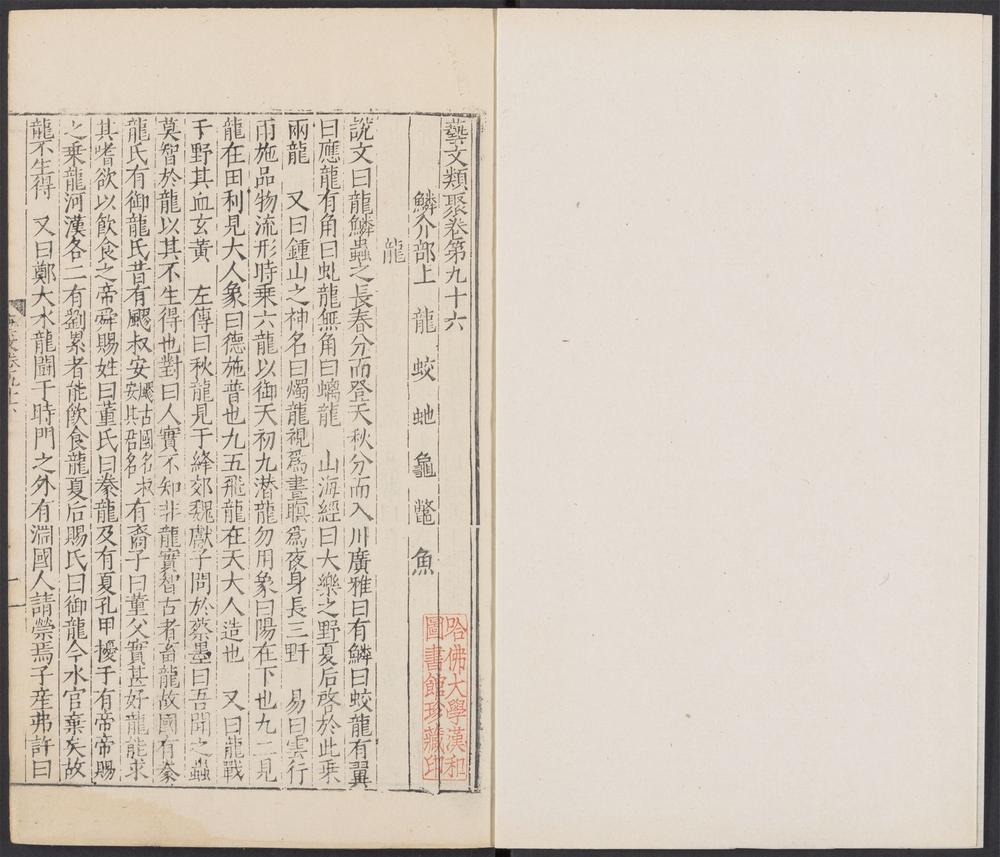 藝文類聚卷第九十六
鱗介部上 龍 蛟 虵 龜 鼈 魚
龍
説文曰龍鱗蟲之長春分而登天秋分而入川廣雅曰有鱗曰蛟龍有翼
曰應龍有角曰虬龍無角曰螭龍 山海經曰大樂之野夏后啓於此乗
兩龍 又曰鍾山之神名曰燭龍視爲晝瞑爲夜身長三野 易曰雲行
雨施品物流形時乗六龍以御天初九潜龍勿用象曰陽在下也九二見
龍在田利見大人象曰德施普也九五飛龍在天大人造也 又曰龍戰
于野其血玄黄 左傳曰秋龍見于絳郊魏獻子問於蔡墨曰吾聞之蟲
莫智於龍以其不生得也對曰人實不知非龍實智古者畜龍故國有豢
龍氏有御龍氏昔有飂叔安飂古國名叔安其君名有裔子曰董父實甚好龍能求
其嗜欲以飲食之帝舜賜姓曰董氏曰豢龍及有夏孔甲擾于有帝帝賜
之乗龍河漢各二有劉累者能飲食龍夏后賜氏曰御龍今水官棄矣故
龍不生得 又曰鄭大水龍鬭于時門之外有淵國人請禜焉子産弗許曰
一
哈佛大學漢和
圖書館珍藏印